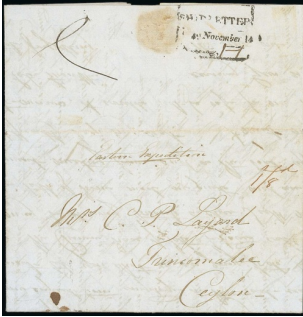 SHIP LETTER
November 14
Eastern Expedition
pd
1/8
Mrs C. P. Layard
Trincomalee
Ceylon